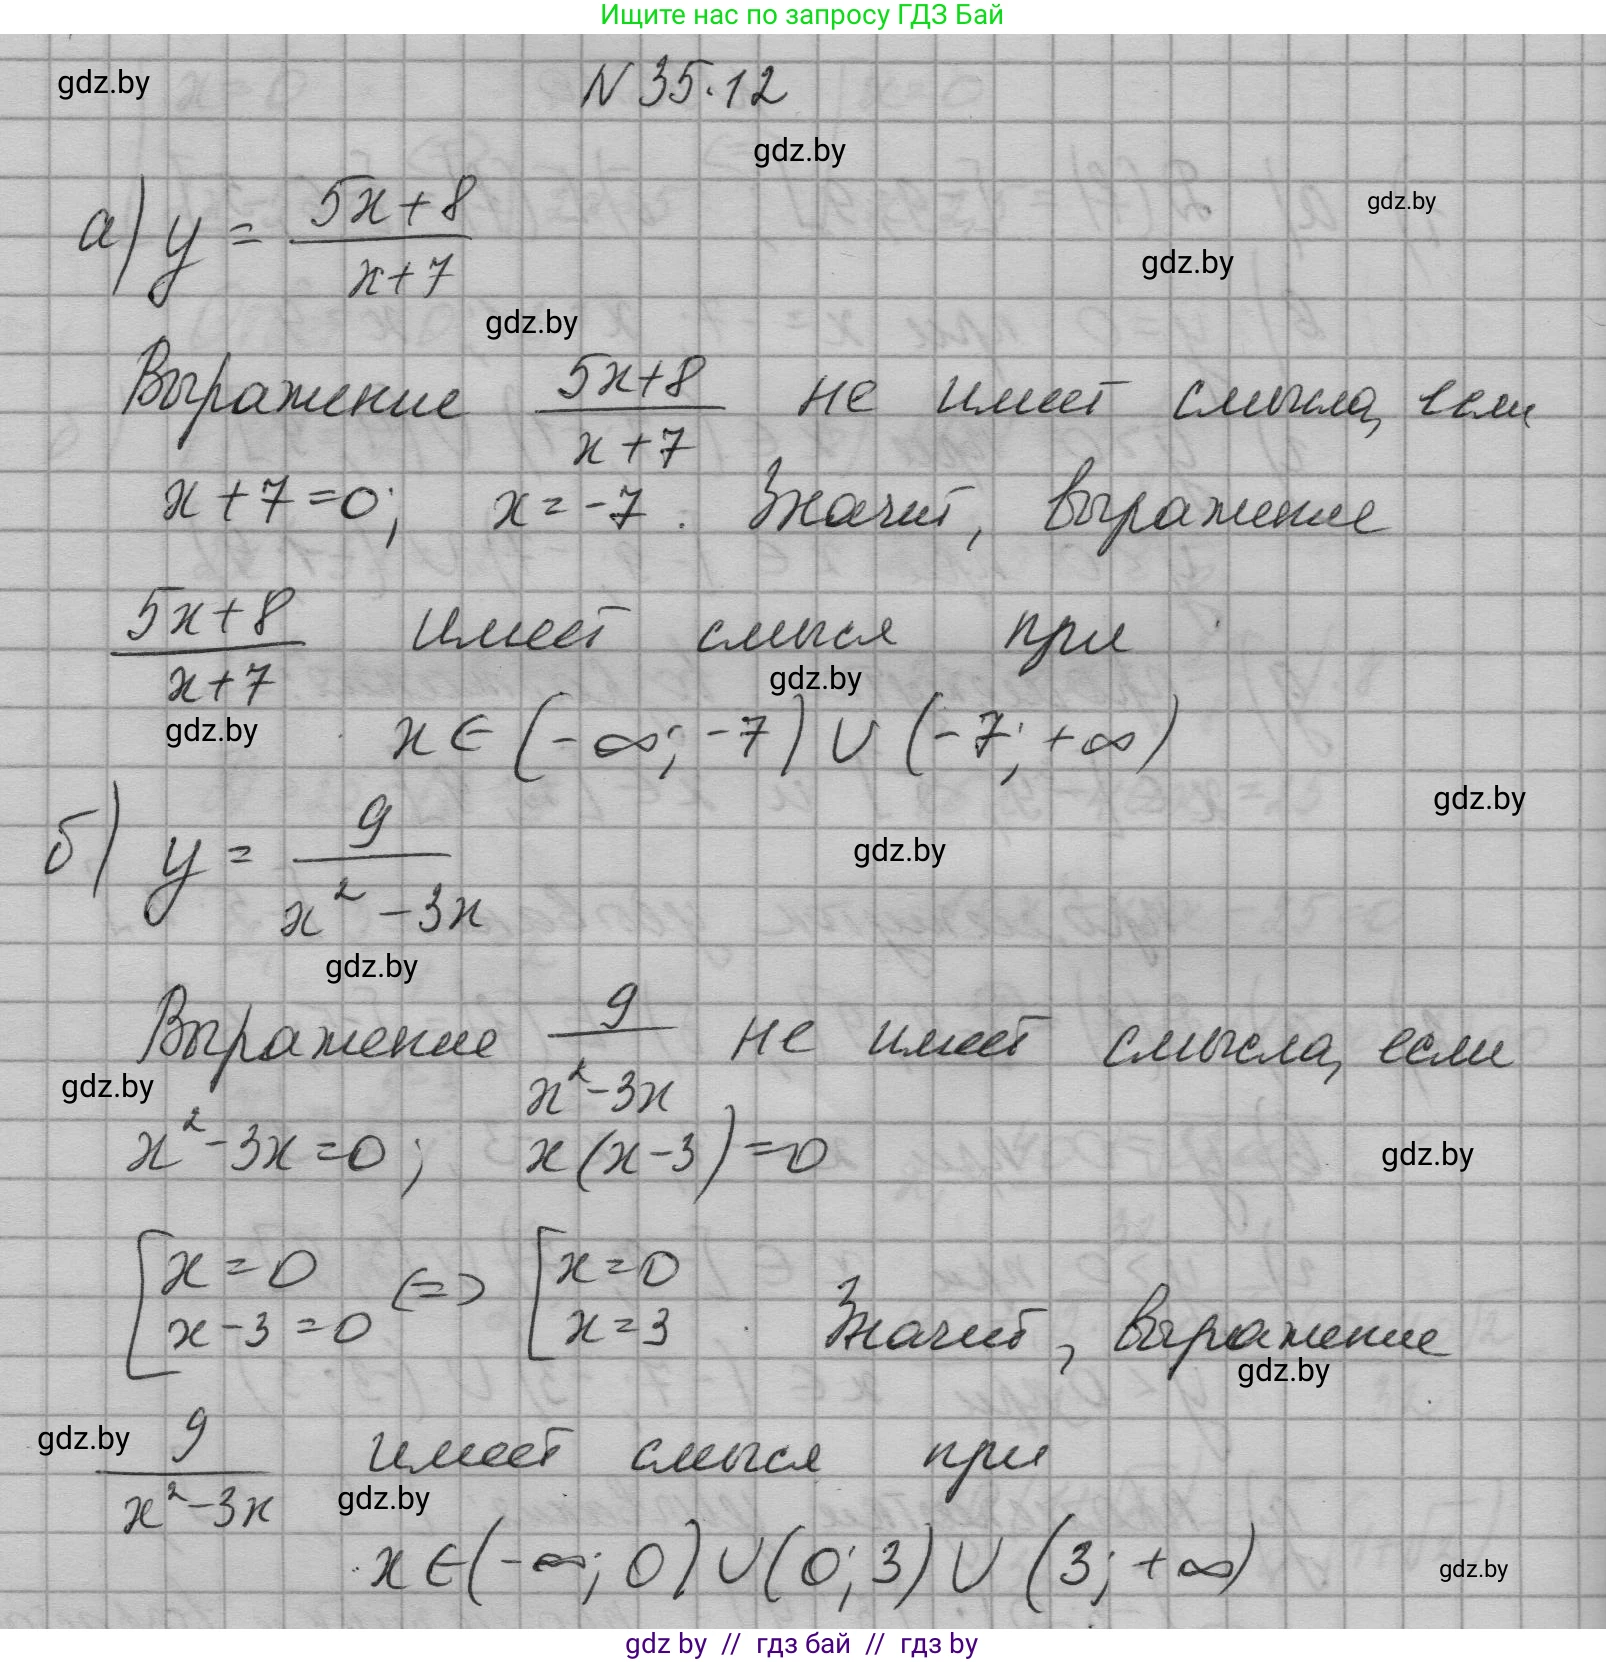 Ищите нас по запросу ГДЗ Бай
gdz.by
N 35.12
gdz.by
gdz.by
а) y = (5x+8)/(x+7)
gdz.by
gdz.by
Выражение (5x+8)/(x+7) не имеет смысла, если
x+7=0; x=-7. Значит, выражение
(5x+8)/(x+7) имеет смысл при
gdz.by
gdz.by
x∈(-∞;-7)∪(-7;+∞)
gdz.by
б) y = 9/(x²-3x)
gdz.by
gdz.by
Выражение 9/(x²-3x) не имеет смысла, если
gdz.by
x²-3x=0; x(x-3)=0
gdz.by
[x=0 x-3=0 <=> [x=0 x=3. Значит, выражение
gdz.by
gdz.by
9/(x²-3x) имеет смысл при
gdz.by
x∈(-∞;0)∪(0;3)∪(3;+∞)
gdz.by
gdz by // гдз бай // гдз by